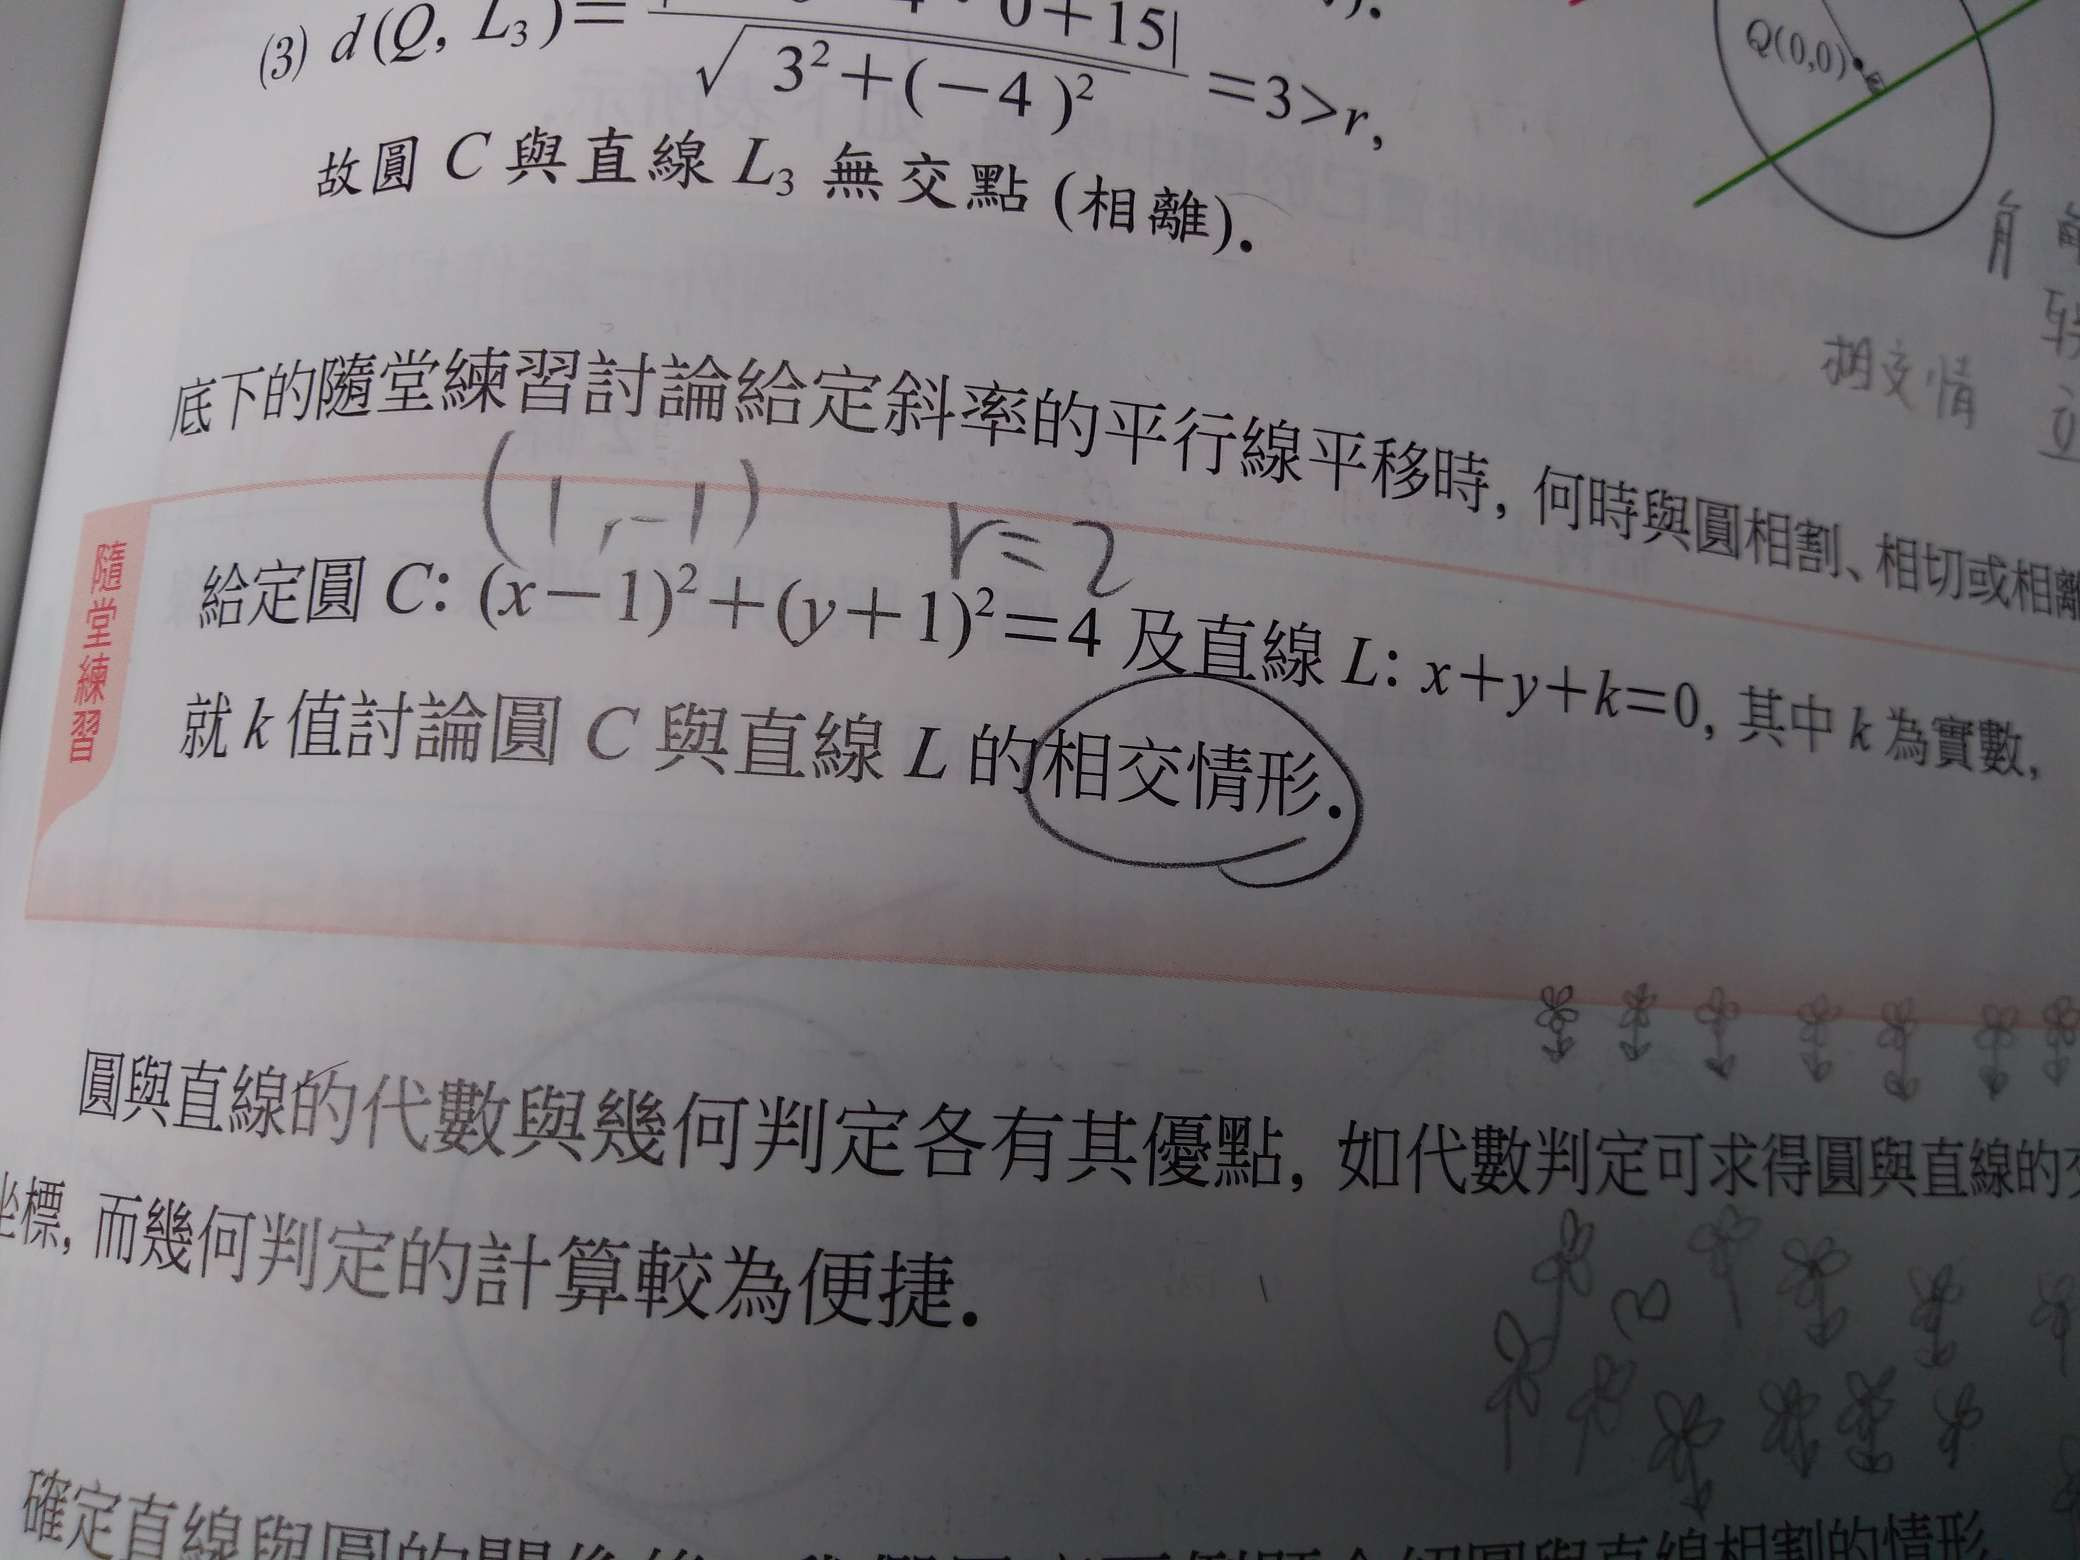 (3) d(Q, L₃)= 0+15| / √3²+(−4)² =3>r,
Q(0,0)
故圓 C 與直線 L₃ 無交點 (相離).
相交情
底下的隨堂練習討論給定斜率的平行線平移時, 何時與圓相割、相切或相離
(1,-1) r=2
隨堂練習
給定圓 C: (x−1)²+(y+1)²=4 及直線 L: x+y+k=0, 其中 k 為實數,
就 k 值討論圓 C 與直線 L 的相交情形.
圓與直線的代數與幾何判定各有其優點, 如代數判定可求得圓與直線的
坐標, 而幾何判定的計算較為便捷.
確定直線與圓的
圓與直線相割的情形